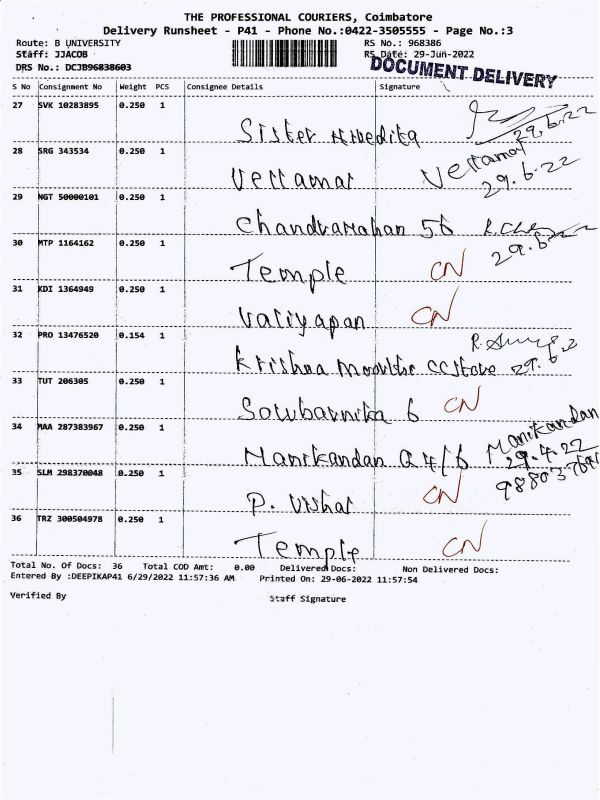 THE PROFESSIONAL COURIERS, Coimbatore
Delivery Runsheet - P41 - Phone No.:0422-3505555 - Page No.:3
Route: B UNIVERSITY RS No.: 968386
Staff: JJACOB RS Date: 29-Jun-2022
DRS No.: DCJB96838603 DOCUMENT DELIVERY
S No Consignment No Weight PCS Consignee Details Signature
27 SVK 10283895 0.250 1
Sister Nivedita 29.6.22
28 SRG 343534 0.250 1
Vettamat Vettamat 29.6.22
29 NGT 50000101 0.250 1
Chandramohan 56 29.6
30 MTP 1164162 0.250 1
Temple CN
31 KDI 1364949 0.250 1
Valiyapan CN
32 PRO 13476520 0.154 1
Krishna CC Store 29.6.22
33 TUT 206305 0.250 1
Sowbarnika 6 CN
34 MAA 287383967 0.250 1
Manikandan Q 4/6 Manikandan 29.4.22
35 SLM 298370048 0.250 1
P. Vishal CN
36 TRZ 300504978 0.250 1
Temple CN
Total No. Of Docs: 36 Total COD Amt: 0.00 Delivered Docs: Non Delivered Docs:
Entered By :DEEPIKAP41 6/29/2022 11:57:36 AM Printed On: 29-06-2022 11:57:54
Verified By Staff Signature